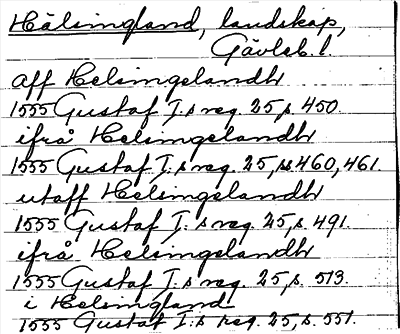 Hälsingland, landskap,
Gävleb. l.
aff Helsingelandh
1555 Gustaf I:s reg. 25, s. 450.
ifrå Helsingelandh
1555 Gustaf I:s reg. 25, ss 460, 461.
utaff Helsingelandh
1555 Gustaf I:s reg. 25, s. 491.
ifrå Helsingelandh
1555 Gustaf I:s reg. 25, s. 513.
i Helsingland
1555 Gustaf I:s reg. 25, s. 551.